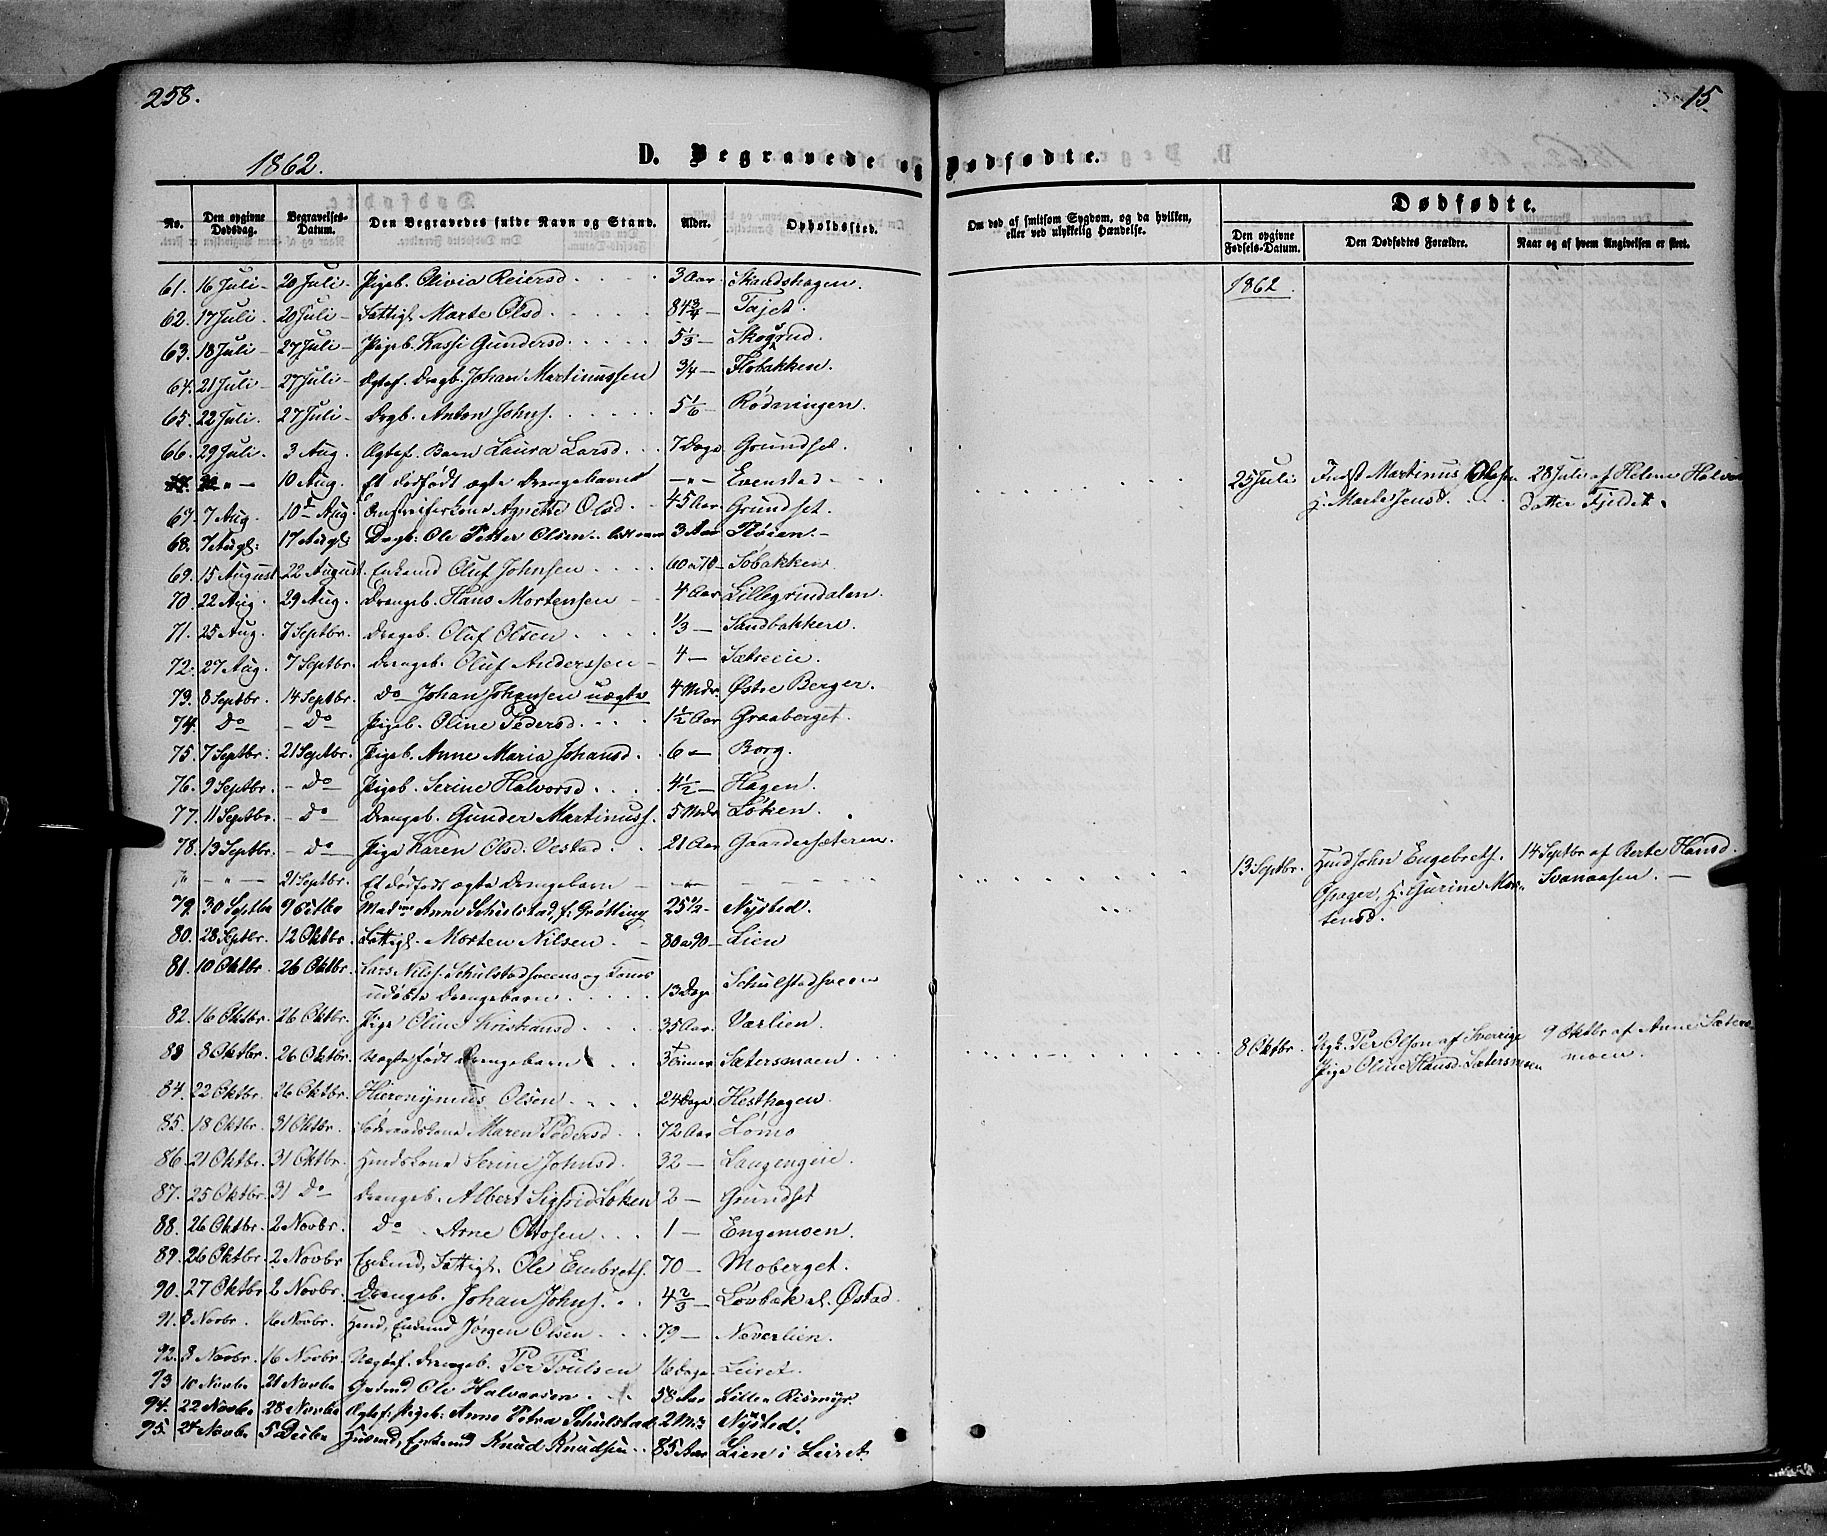 258.
15
1862.
D. Begravede og Dødfødte.
No. Den opgivne Dødsdag. Begravelses-Datum. Den Begravedes fulde Navn og Stand. Alder. Opholdssted. Om død af smitsom Sygdom, og da hvilken, eller ved ulykkelig Hændelse.
Dødfødte.
Den opgivne Fødsels-Datum. Den Dødfødtes Forældre. Naar og af hvem Angivelsen er skeet.
1862.
61. 16 Juli - 20 Juli - Pigeb. Olivia Reiersd 3 Aar Strandshagen.
62. 17 Juli. 20 Juli - Fattigl. Marte Olsd. 84 3/4 - Tajet.
63. 18 Juli - 27 Juli - Pigeb. Kassi Gundersd. 5 1/3 - Skogrud.
64. 21 Juli - 27 Juli - Ægtef. Drgb. Johan Martinussen 3/4 - Flobakken.
65. 22 Juli. 27 Juli - Drgb. Anton Johns. 5 1/6 - Rödningen.
66. 29 Juli. 3 Aug. Ægtef. Barn Laura Larsd. 7 Dage Grundset.
" - 10 Aug. Et dødfödt ægte Drengebarn - " - Evenstad -
25 Juli Indst Martinus Olsen H. Marte Jensd. 28 Juli af Helene Halvorsdatter Fjeldet.
67. 7 Aug. 10 Aug. Agnethe Olsd. 45 Aar Grundset.
68. 7 Augl: 17 Augl Drgb: Ole Petter Olsen 3 Aar Flöien. -
69. 15 August 22 August. Enkemd Oluf Johnsen 60 a 70 - Söbakken
70. 22 Aug. 29 Aug. Drengeb. Hans Mortensen 4 Aar Lillegrindalen.
71. 25 Aug. 7 Septbr. Drengeb. Oluf Olsen 1/3 - Sandbakken.
72. 27 Aug. 7 Septbr. Drengeb. Oluf Anderssen - 4 - Sætreeie.
73. 8 Septbr. 14 Septbr. Do Johan Johansen uægte 4 Mdr. Østre Berger.
74. Do - Do Pigeb. Oline Pedersd. 1 1/2 Aar Graaberget.
75. 7 Septbr. 21 Septbr. Pigeb. Anne Maria Johansd. 6 - Borg.
76. 9 Septbr. - Do Pigeb. Serine Halvorsd. 4 1/2 - Hagen.
77. 11 Septbr. - Do Drengeb. Gunder Martinuss. 5 Mdr. Løken.
78. 13 Septbr. - Do Pige Karen Olsd. Vestad. 21 Aar Gaardersæteren.
" - " - 21 Septbr. Et dødfødt ægte Drengebarn - " -
13 Septbr. Husmd John Engebrets. H. Gurine Mortensd. 14 Septbr af Berte Hansd. Svenaasen. -
79. 30 Septbr 9 Octbr Madme Anne Schulstad, f. Grötting 25 1/2 - Nysted.
80. 28 Septbr. 12 Oktbr. Fattigl. Morten Nilsen. 80 a 90 - Lien
81. 10 Oktbr. 26 Oktbr. Lars Nils. Schulstadsveens og Kones udöbte Drengebarn 13 Dage Schulstadsveen
82. 16 Oktbr. 26 Oktbr. Pige Oline Kristiansd. 35 Aar.Værlien.
83 8 Oktbr. 26 Oktbr. Uægte født Drengebarn 3 Timer Sætersmoen.
8 Oktbr. Ugk. Per Olson af Sverige Pige Oline Hansd. Sætersmoen 9 Oktbr af Anne Sætersmoen.
84. 22 Oktbr. 26 Oktbr. Hieronymus Olsen. 24 Dage Hesthagen.
85. 18 Oktbr. 31 Oktbr. Föderaadskone Maren Pedersd. 72 Aar Lömo
86. 21 Oktbr. 31 Oktbr. Husmdskone Serine Johnsd. 32 - Langengeie.
87. 25 Oktbr. 31 Do Drengeb. Albert Sigfrid Løken 2 - Grundset
88. 26 Oktbr. 2 Novbr. Do Arne Ottosen. 1 - Engemoen.
89. 26 Oktbr. 2 Novbr Enkemd, Fattigl. Ole Embrets. 70 - Moberget.
90. 27 Oktbr. 2 Novbr. Drengeb. Johan Johns. 4 2/3 - Lövbæk v. Østad.
91. 8 Novbr. 16 Novbr. Husmd, Enkemd Jørgen Olsen 79 - Næverlien.
92. 8 Novbr. 16 Novbr. Uægtef. Drengeb. Per Poulsen 16 Dage Leiret.
93 10 Novbr 21 Novbr Gaardmd Ole Halvorsen 58 Aar Lille Rismyr.
94. 22 Novbr 28 Novbr Ægtef: Pigeb: Anne Petra Schulstad 2 Mdr Nysted.
95. 24 Novbr 5 Decbr Husmd, Enkemd Knud Knudsen 85 Aar Lien i Leiret